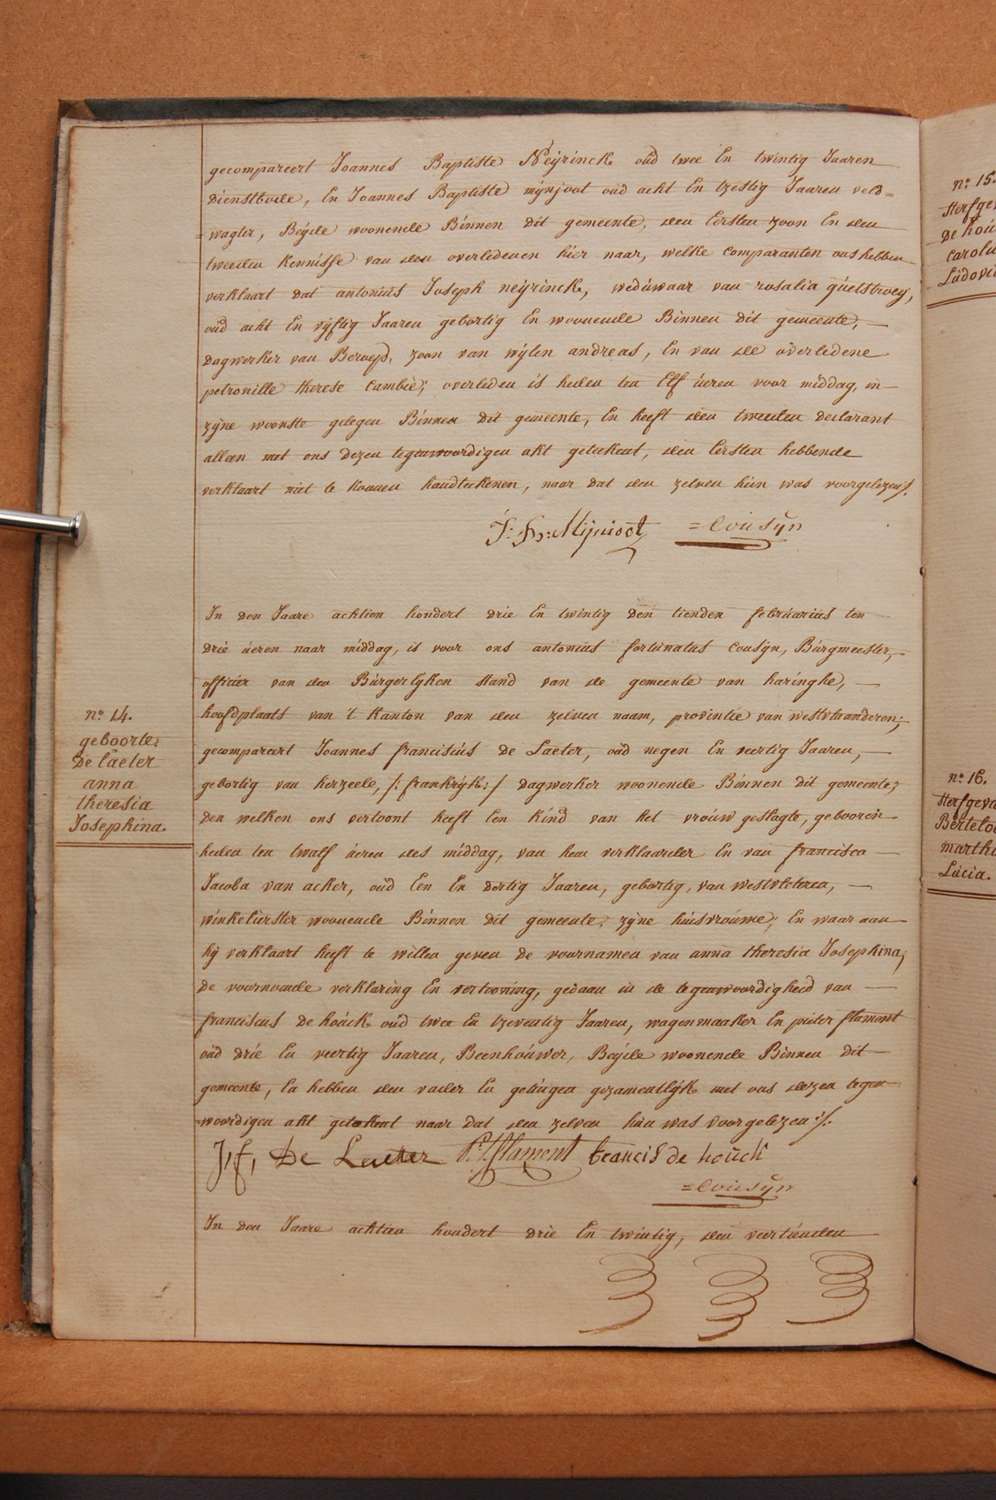 gecompareert Joannes Baptiste Neÿrinck oúd twee En twintig Jaaren
dienstbode, En Joannes Baptiste mijnjoot oúd acht En tzestig Jaaren veld=
=wagter, Beÿde woonende Binnen dit gemeente, den Eersten zoon En den
tweeden kennisse van den overledenen hier naar, welke comparanten ons hebben
verklaart dat antonius Joseph neÿrinck, wedúwaar van rosalia
oúd acht En vÿftig Jaaren gebortig En woonende Binnen dit gemeente, —
dagwerker van Beroep, zoon van wÿlen andreas, En van de overledene
petronille therese Cambie; overleden is heden ten Elf úeren voor middag, in —
zÿne woonste gelegen Binnen dit gemeente, En heeft den tweeden declarant
alleen met ons dezen tegenwoordigen akt geteekent, den Eersten hebbende
verklaart niet te konnen handteekenen, naar dat den zelven hún was voorgelezen /.
J: B: Mijnioot =Coúsÿn
In den Jaare achtien hondert drie En twintig den tienden februarius ten —
drie úeren naar middag, is voor ons antonius fortunatus Cousÿn, Búrgmeester, —
officier van den Búrgerlÿken stand van de gemeente van haringhe, —
hoofdplaats van 't Kanton van den zelven naam, provintie van westvlaanderen; —
gecompareert Joannes franciscús de Laeter, oúd negen En veertig Jaaren, —
gebortig van herzeele, /: frankrÿk :/ dagwerker woonende Binnen dit gemeente;
den welken ons vertoont heeft Een Kind van Het vroúw geslagte, gebooren
heden ten twalf úeren des middag, van hem verklaarder En van francisca —
Jacoba van acker, oúd Een En dertig Jaaren, gebortig, van westvleteren, —
winkelierster woonende Binnen dit gemeente; zÿne húisvrouwe; En waar aan
hÿ verklaart heeft te willen geven de voornamen van anna theresia Josephina,
de voornoemde verklaring En vertooning, gedaan in de tegenwoordigheid van —
franciscus De hoúck oúd twee En tzeventig Jaaren, wagenmaaker En pieter flament
oúd drie En veertig Jaaren, Beenhoúwer, Beÿde woonende Binnen dit —
gemeente, En hebben den vader En getúigen gezamentlÿk met ons dezen tegen=
woordigen akt geteekent naar dat den zelven hún was voorgelezen :/.
n.º 14.
geboorte:
De Laeter
anna
theresia
Josephina.
J, f, De Laeter P:r flament francis de hoúck
=Coúsÿn
In den Jaare achtien hondert drie En twintig, den veertienden
n.º 15.
De hoúc
carolu
Lúdovic
n.º 16.
Berteloo
martha
Lúcia.